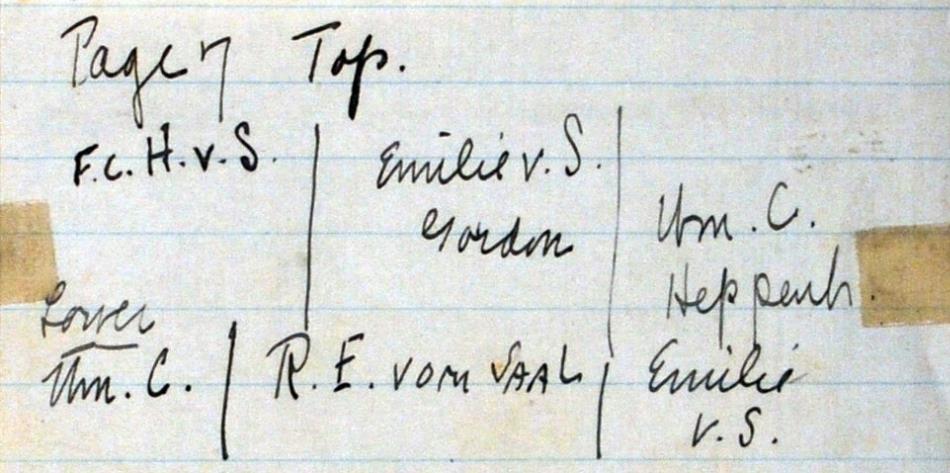 Page 7 Top.
F.C.H.v.S. | Emilie v. S. Gordon | Wm. C. Heppenh.
Lower
Wm. C. | R. E. vom SAAL | Emilie v. S.